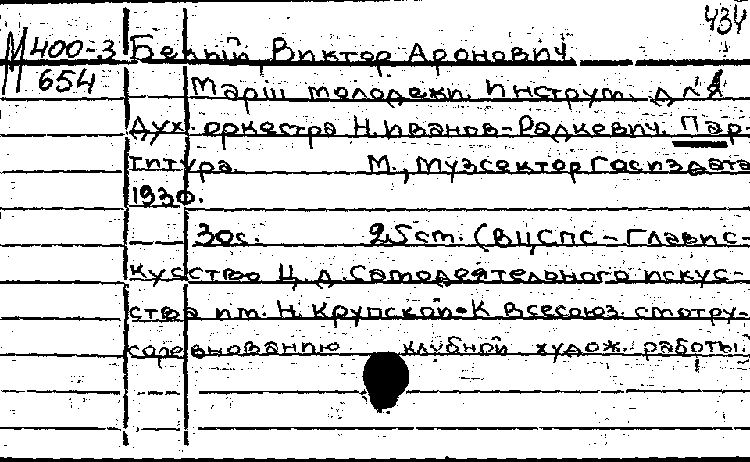 434
М 400-3 Белый Виктор Аронович.
654 Марш молодежи. Инструм. для
дух. оркестра Н. Иванов-Радкевич. Пар-
титура. М., Музсектор Госиздата
1930.
30с. 25 см. (ВЦСПС – Главис-
кусство Ц. д. самодеятельного искус-
ства им. Н. Крупской-К всесоюз. смотру-
соревнованию клубной худож. работы.